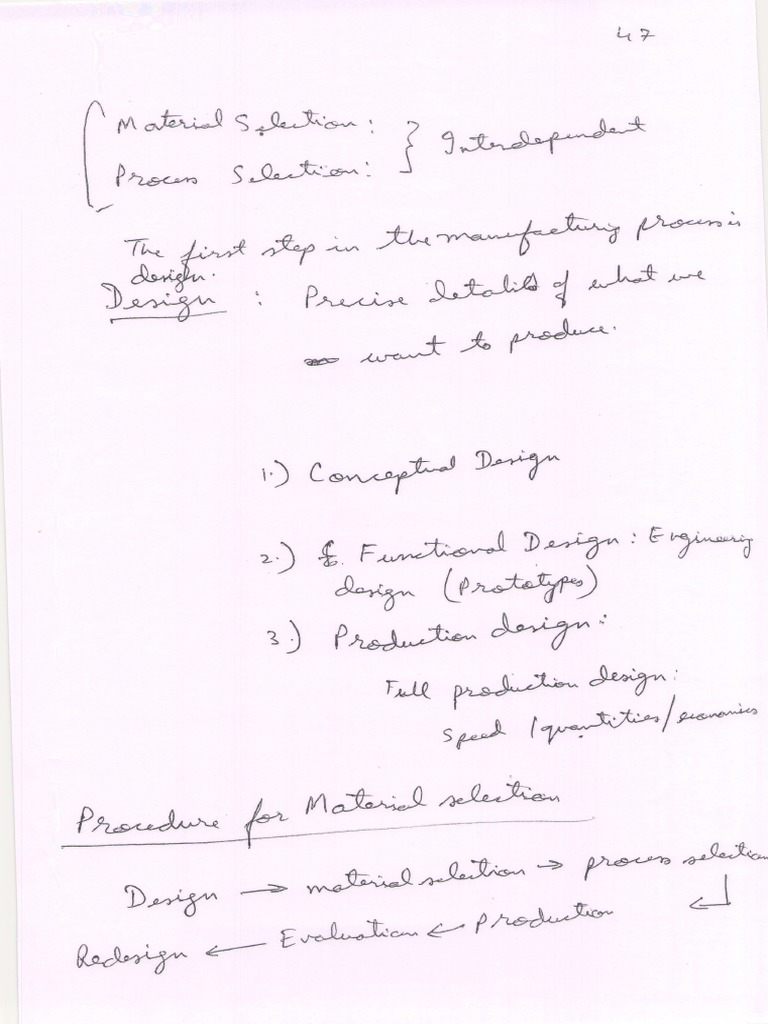 47
Material Selection:
Process Selection: } Interdependent
The first step in the manufacturing process is
design.
Design : Precise details of what we
want to produce.
1.) Conceptual Design
2.) Functional Design: Engineering
design (Prototypes)
3.) Production design:
Full production design:
Speed /quantities/economics
Procedure for Material selection
Design → material selection → process selection
↲
Redesign ← Evaluation ← Production